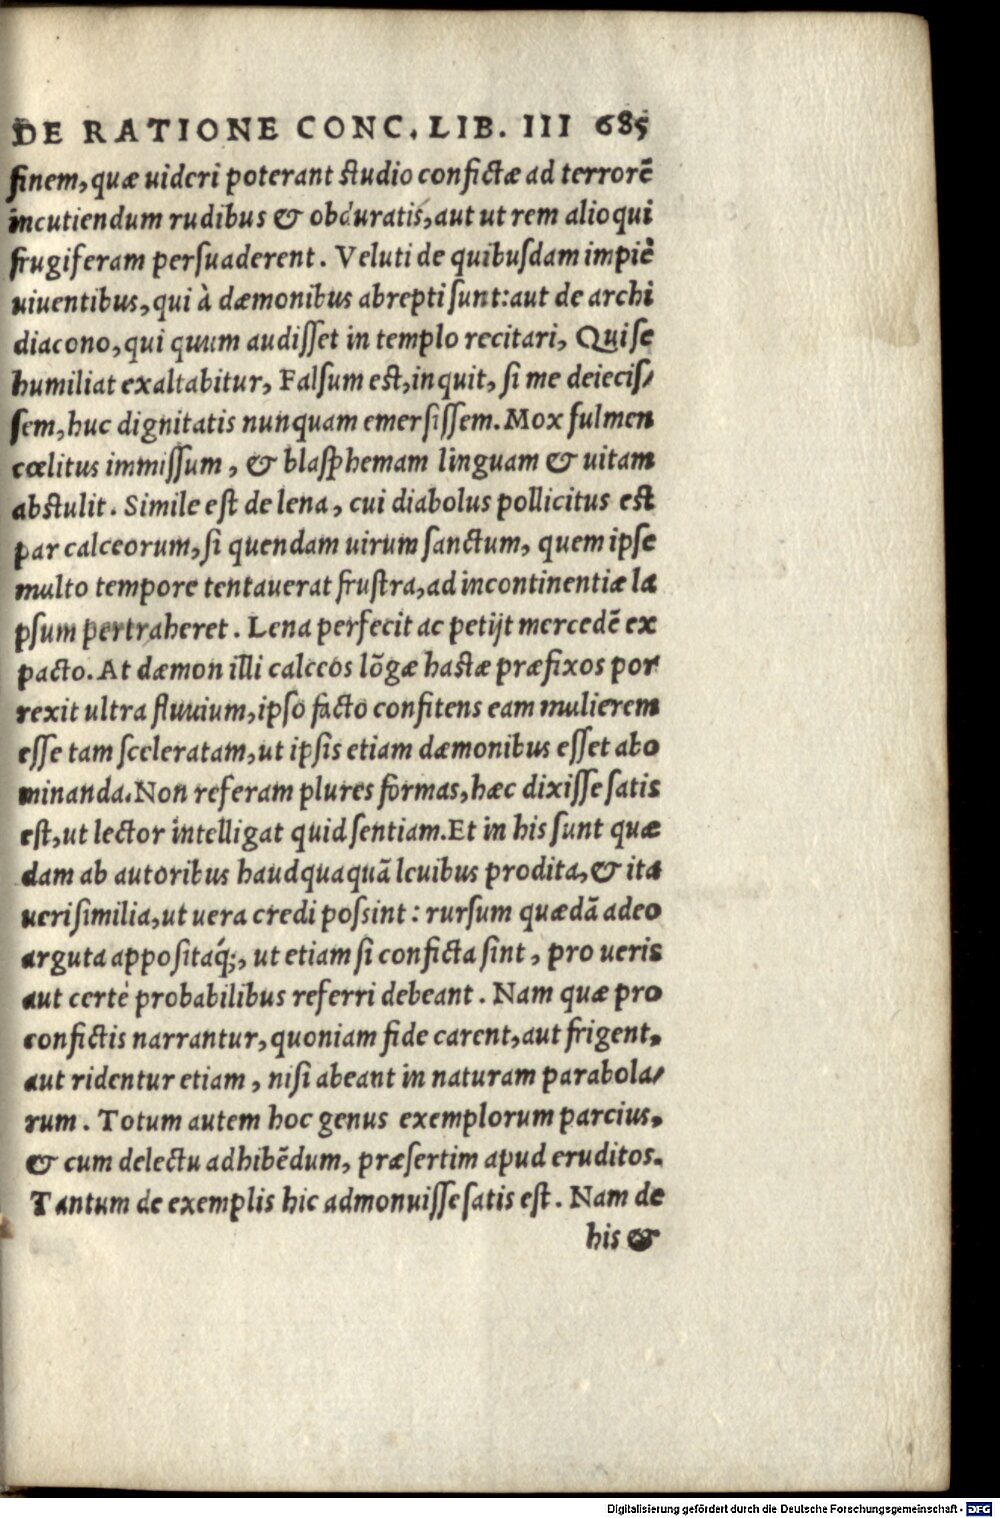 DE RATIONE CONC. LIB. III 685
finem, quæ uideri poterant studio confictæ ad terrorē
incutiendum rudibus & obduratis, aut ut rem alioqui
frugiferam persuaderent. Veluti de quibusdam impiè
uiuentibus, qui à dæmonibus abrepti sunt: aut de archi
diacono, qui quum audisset in templo recitari, Qui se
humiliat exaltabitur, Falsum est, inquit, si me deiecis/
sem, huc dignitatis nunquam emersissem. Mox fulmen
cœlitus immissum, & blasphemam linguam & uitam
abstulit. Simile est de lena, cui diabolus pollicitus est
par calceorum, si quendam uirum sanctum, quem ipse
multo tempore tentauerat frustra, ad incontinentiæ la
psum pertraheret. Lena perfecit ac petijt mercedē ex
pacto. At dæmon illi calceos lōgæ hastæ præfixos por
rexit ultra fluuium, ipso facto confitens eam mulierem
esse tam sceleratam, ut ipsis etiam dæmonibus esset abo
minanda. Non referam plures formas, hæc dixisse satis
est, ut lector intelligat quid sentiam. Et in his sunt quæ
dam ab autoribus haudquaquā leuibus prodita, & ita
uerisimilia, ut uera credi possint: rursum quædā adeo
arguta appositaq́;, ut etiam si conficta sint, pro ueris
aut certè probabilibus referri debeant. Nam quæ pro
confictis narrantur, quoniam fide carent, aut frigent,
aut ridentur etiam, nisi abeant in naturam parabola/
rum. Totum autem hoc genus exemplorum parcius,
& cum delectu adhibēdum, præsertim apud eruditos.
Tantum de exemplis hic admonuisse satis est. Nam de
his &
Digitalisierung gefördert durch die Deutsche Forschungsgemeinschaft - DFG